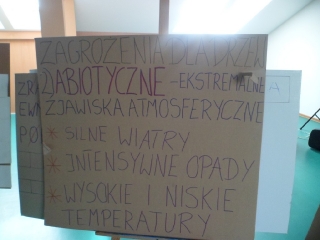 ZAGROŻENIA DLA DRZEW
1) ABIOTYCZNE - EKSTREMALNE
ZJAWISKA ATMOSFERYCZNE
* SILNE WIATRY
* INTENSYWNE OPADY
* WYSOKIE I NISKIE
TEMPERATURY